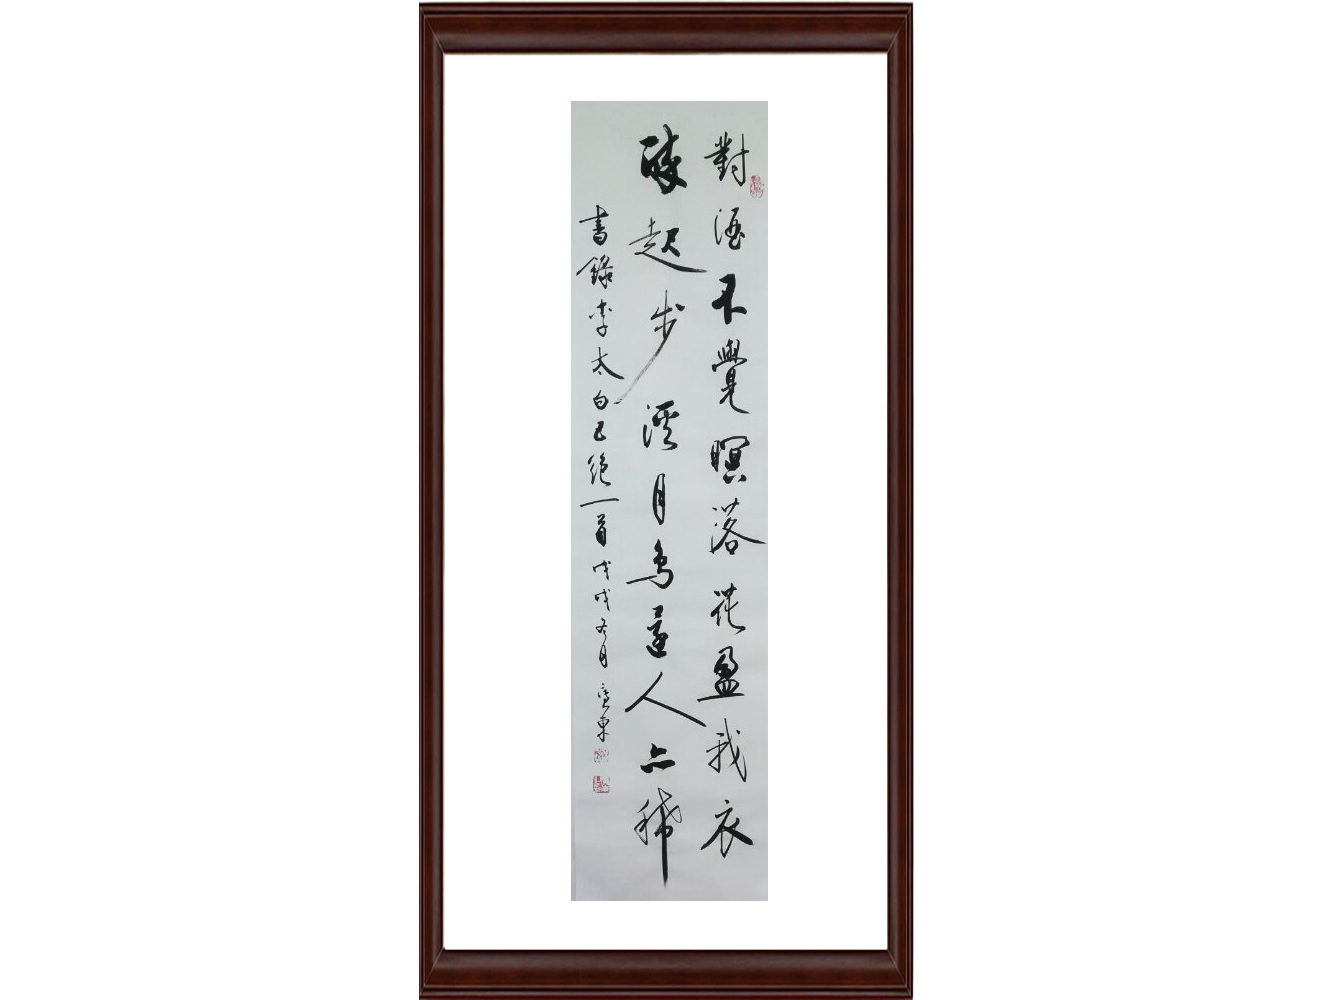 對酒不覺暝落花盈我衣
醉起步溪月鳥還人亦稀
書錄李太白五絕一首戊戌冬月東